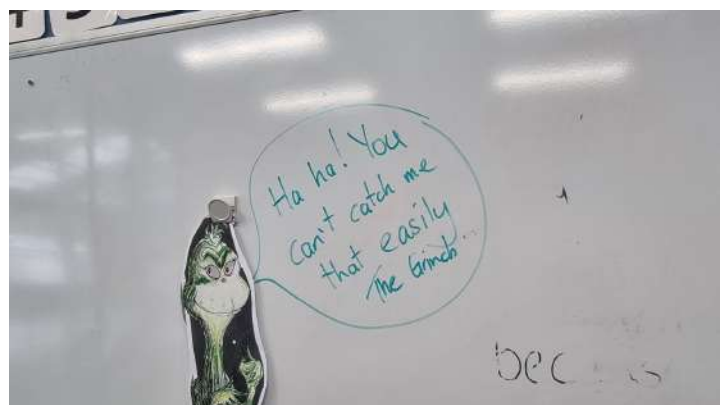 Ha ha! You
can't catch me
that easily
The Grinch...
bec